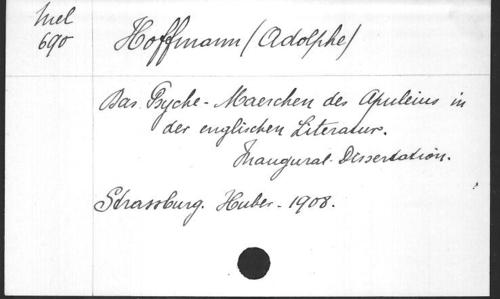 Mel
690
Hoffmann (Adolphe)
Das Psyche-Maerchen des Apuleius in
der englischen Literatur.
Inaugural-Dissertation.
Strassburg. Huber - 1908.